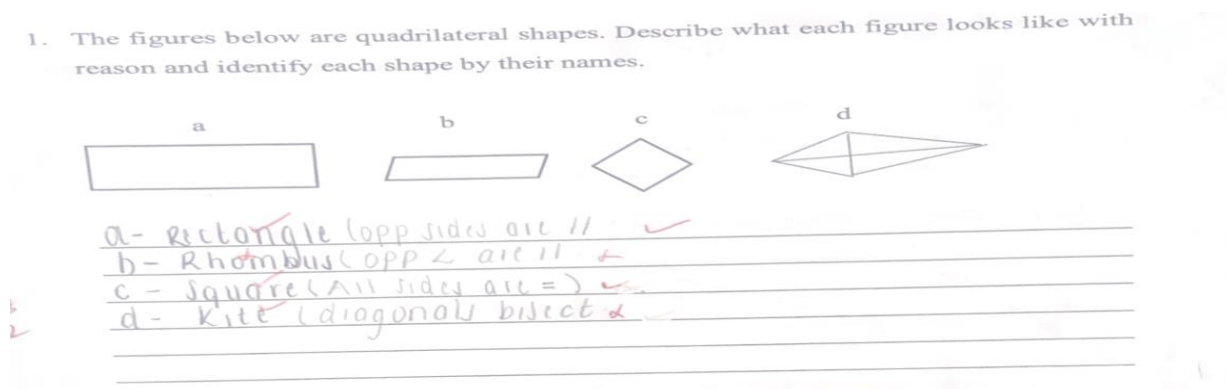 1. The figures below are quadrilateral shapes. Describe what each figure looks like with
reason and identify each shape by their names.
a b c d
a- Rectangle (opp sides are //
b- Rhombus ( opp < are //
c - Square ( All sides are = )
d - Kite ( diagonals bisect